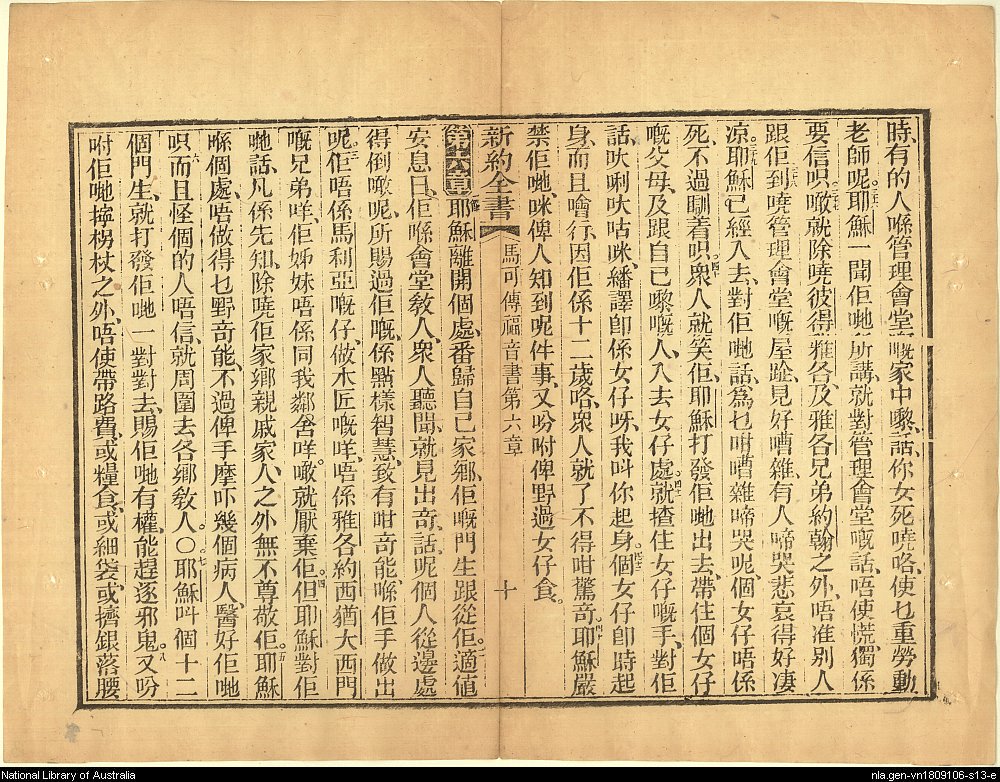 時、有的人喺管理會堂嘅家中嚟、話、你女死嘵咯、使乜重勞動
老師呢、耶穌一聞佢哋所講、就對管理會堂嘅話、唔使慌、獨係
要信呮、噉就除嘵彼得、雅各、及雅各兄弟約翰之外、唔准別人
跟佢、到嘵管理會堂嘅屋趾、見好嘈雜、有人啼哭悲哀得好凄
凉、耶穌已經入去、對佢哋話、爲乜咁嘈雜啼哭呢、個女仔唔係
死、不過瞓着呮、衆人就笑佢、耶穌打發佢哋出去、帶住個女仔
嘅父母、及跟自己嚟嘅人、入去女仔處、就揸住女仔嘅手、對佢
話、吠唎吠咕咪、繙譯卽係女仔呀、我叫你起身、個女仔卽時起
身、而且噲行、因佢係十二歲咯、衆人就了不得咁驚奇、耶穌嚴
禁佢哋、咪俾人知到呢件事、又吩咐俾野過女仔食。
新約全書 馬可傳福音書第六章 十
第六章 耶穌離開個處、番歸自己家鄉、佢嘅門生跟從佢、適値
安息日、佢喺會堂敎人、衆人聽聞、就見出奇、話、呢個人從邊處
得倒噉呢、所賜過佢嘅、係點樣智慧、致有咁奇能、喺佢手做出
呢、佢唔係馬利亞嘅仔、做木匠嘅咩、唔係雅各約西猶大西門
嘅兄弟咩、佢姊妹唔係同我鄰舍咩、噉就厭棄佢、但耶穌對佢
哋話、凡係先知、除嘵佢家鄉親戚家人之外、無不尊敬佢、耶穌
喺個處、唔做得乜野奇能、不過俾手摩吓幾個病人、醫好佢哋
呮、而且怪個的人唔信、就周圍去各鄉敎人。〇耶穌叫個十二
個門生、就打發佢哋一對對去、賜佢哋有權、能趕逐邪鬼、又吩
咐佢哋、擰柺杖之外、唔使帶路費、或糧食、或細袋、或擠銀落腰
National Library of Australia
nla.gen-vn1809106-s13-e